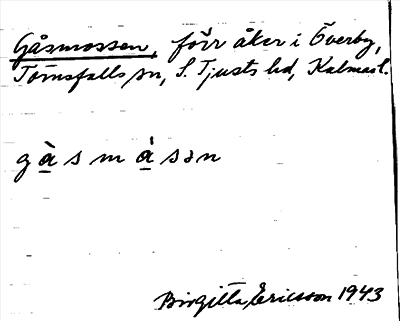 Gåsmossen, förr åker i Överby,
Törnsfalls sn, S. Tjusts hd, Kalmar l.
g à s m å̀ s ə n
Birgitta Ericsson 1943